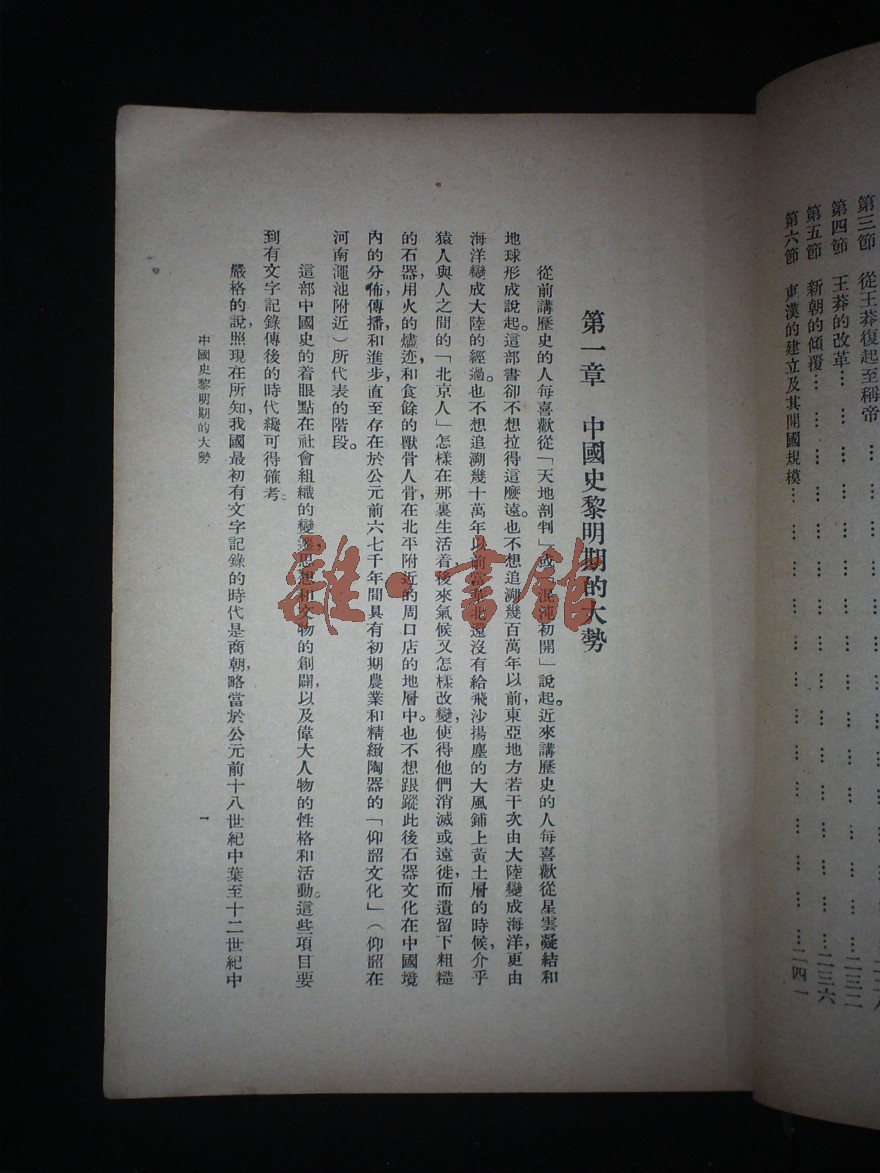 第三節 從王莽復起至稱帝 … … … … … … … … … …
第四節 王莽的改革 … … … … … … … … … … … … 二三二
第五節 新朝的傾覆 … … … … … … … … … … … … 二三六
第六節 東漢的建立及其開國規模 … … … … … … … … … 二四一
第一章 中國史黎明期的大勢
從前講歷史的人每喜歡從「天地剖判」或「混沌初開」說起。近來講歷史的人每喜歡從星雲凝結和
地球形成說起。這部書卻不想拉得這麼遠。也不想追溯幾百萬年以前,東亞地方若干次由大陸變成海洋,更由
海洋變成大陸的經過。也不想追溯幾十萬年以前當華北還沒有給飛沙揚塵的大風鋪上黃土層的時候,介乎
猿人與人之間的「北京人」怎樣在那裏生活着,後來氣候又怎樣改變,使得他們消滅或遠徙,而遺留下粗糙
的石器,用火的燼迹,和食餘的獸骨人骨,在北平附近的周口店的地層中。也不想跟蹤此後石器文化在中國境
內的分佈,傳播和進步,直至存在於公元前六七千年間具有初期農業和精緻陶器的「仰韶文化」(仰韶在
河南澠池附近)所代表的階段。
這部中國史的着眼點在社會組織的變遷,思想和文物的創闢,以及偉大人物的性格和活動。這些項目要
到有文字記錄傳後的時代纔可得確考。
嚴格的說,照現在所知,我國最初有文字記錄的時代是商朝,略當於公元前十八世紀中葉至十二世紀中
中國史黎明期的大勢 一
雜·書館